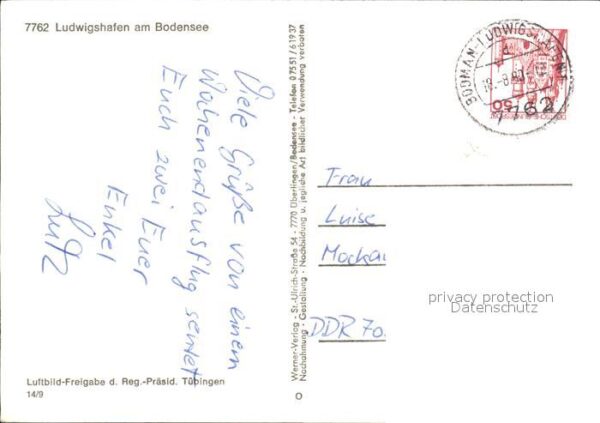 7762 Ludwigshafen am Bodensee
Viele Grüße von einem
Wochenendausflug sendet
Euch zwei Euer
Enkel
Lutz
Luftbild-Freigabe d. Reg.-Präsid. Tübingen
14/9
Werner-Verlag - St.-Ulrich-Straße 54 - 7770 Überlingen/Bodensee - Telefon 07551/61937
Nachahmung - Gestaltung - Nachbildung u. jegliche Art bildlicher Verwendung verboten
BODMAN-LUDWIGSHAFEN
7762
50
Frau
Luise
Mockau
DDR 70
privacy protection
Datenschutz